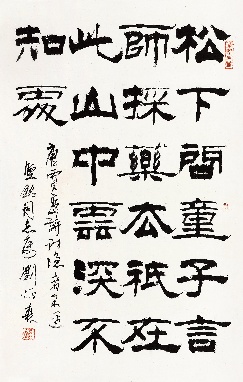 松下問童子言
師採藥去祇在
此山中雲深不
知處
唐賈島尋訪隱者不遇
同志屬劉炳森